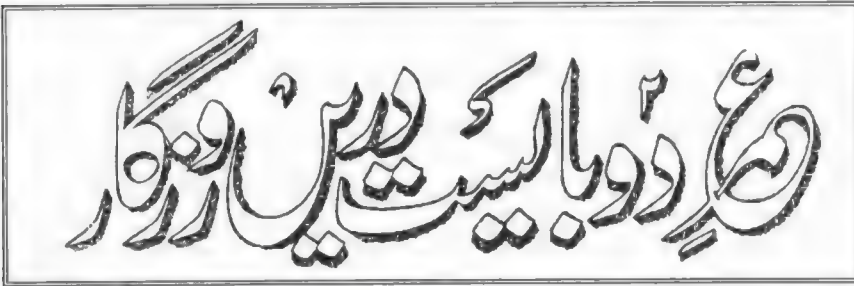 عمر دو بایست درین روزگار